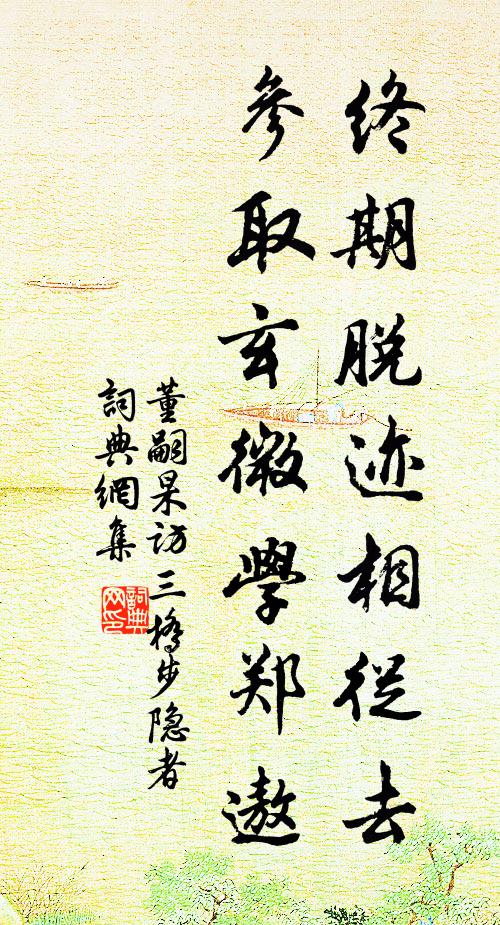 终期脱迹相從去
參取玄微學郑遨
董嗣杲访三橋步隐者
詞典網集
詞典
网印